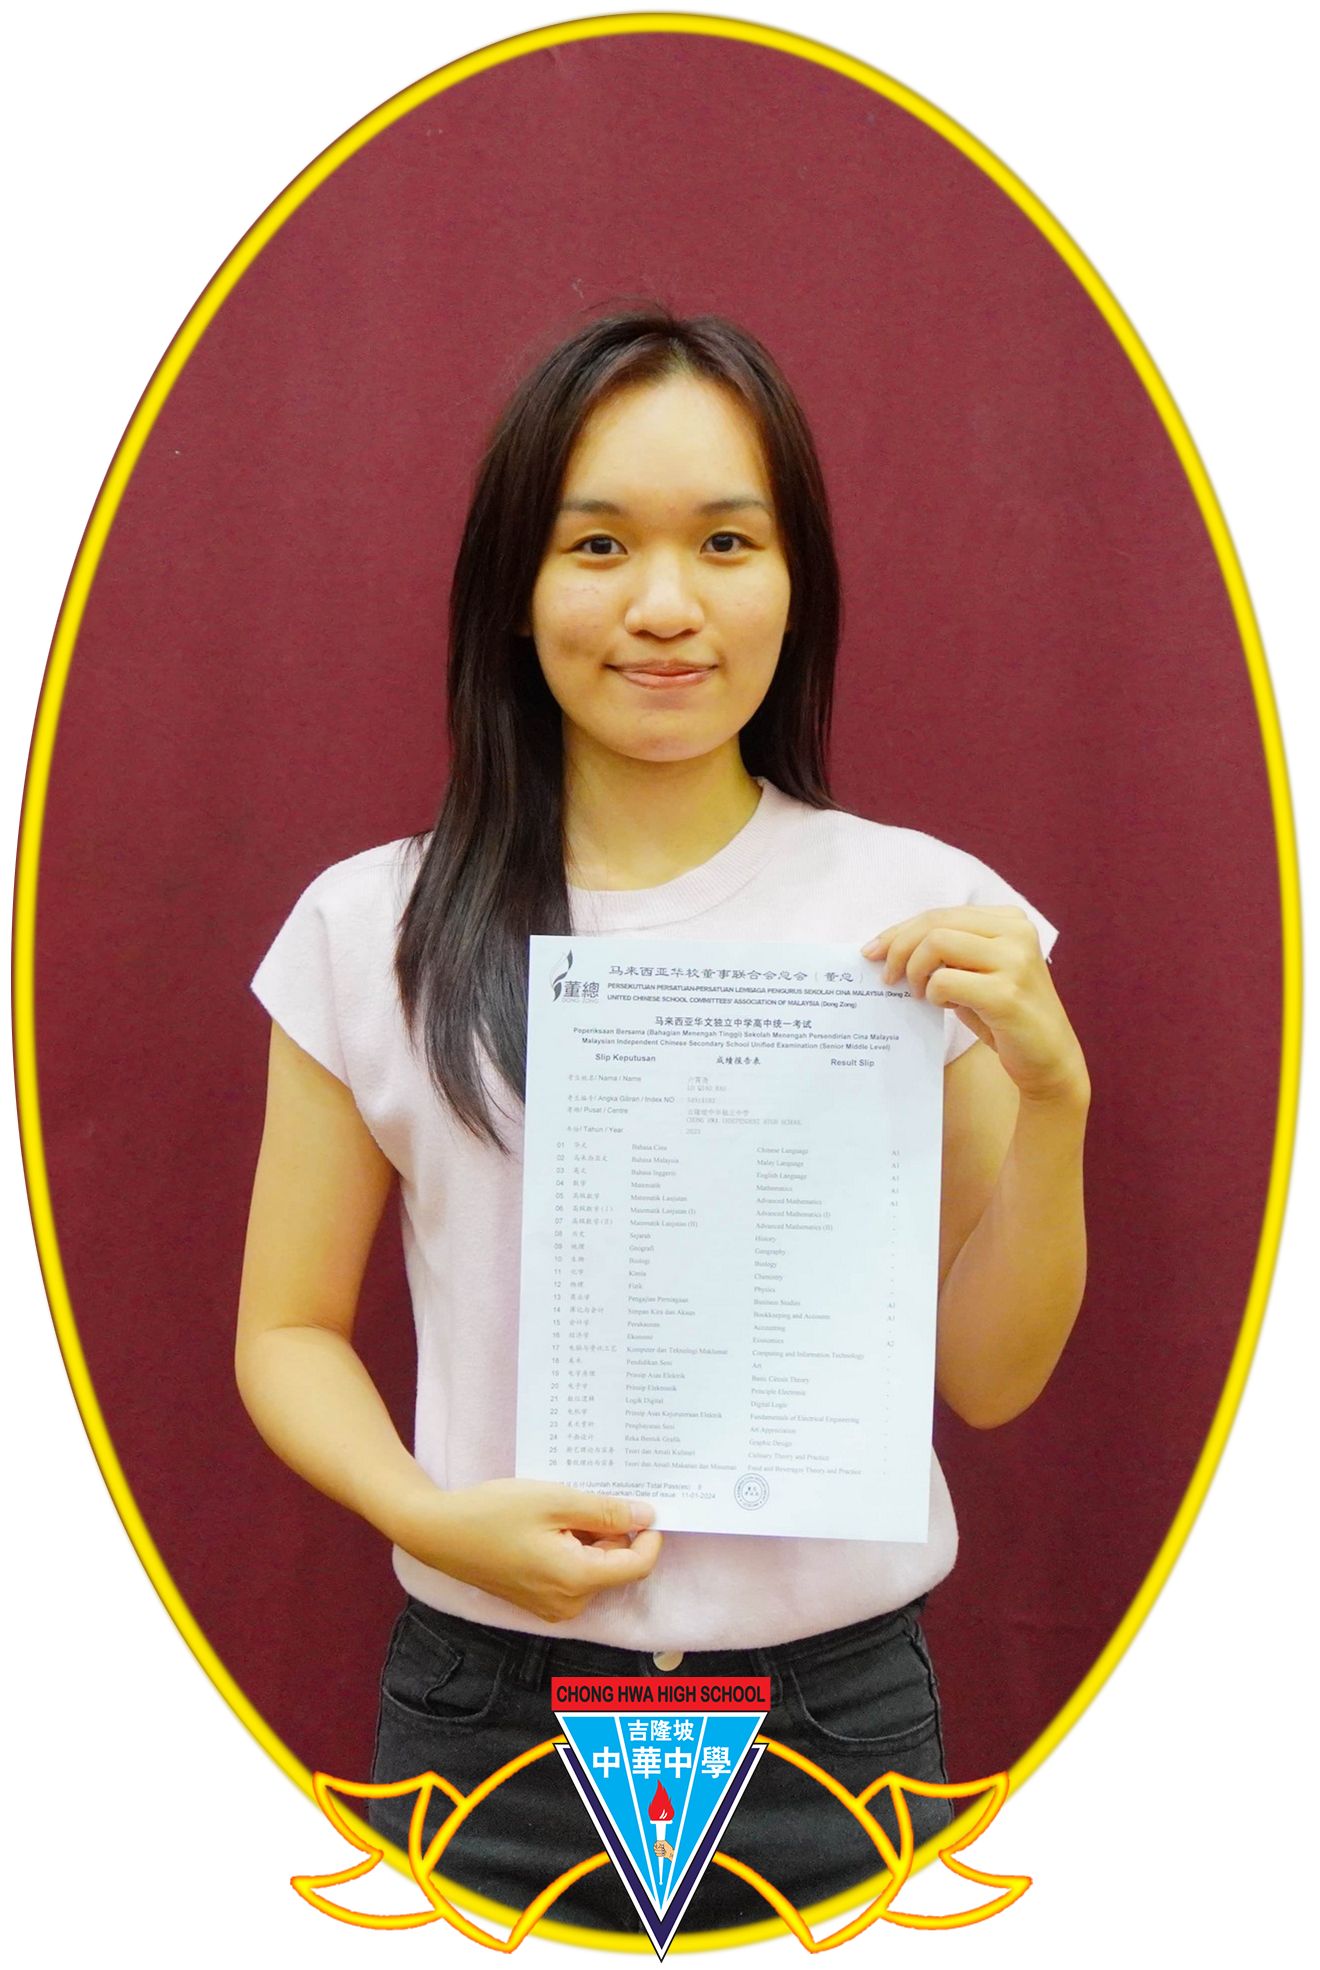 董總
DONG ZONG
马来西亚华校董事联合会总会（董总）
PERSEKUTUAN PERSATUAN-PERSATUAN LEMBAGA PENGURUS SEKOLAH CINA MALAYSIA (Dong Zo
UNITED CHINESE SCHOOL COMMITTEES' ASSOCIATION OF MALAYSIA (Dong Zong)
马来西亚华文独立中学高中统一考试
Peperiksaan Bersama (Bahagian Menengah Tinggi) Sekolah Menengah Persendirian Cina Malaysia
Malaysian Independent Chinese Secondary School Unified Examination (Senior Middle Level)
Slip Keputusan 成绩报告表 Result Slip
考生姓名/ Nama / Name
考生编号/ Angka Giliran / Index NO
考场/ Pusat / Centre 吉隆坡中华独立中学
CHONG HWA INDEPENDENT HIGH SCHOOL
年份/ Tahun / Year 2023
01 华文 Bahasa Cina Chinese Language A1
02 马来西亚文 Bahasa Malaysia Malay Language A1
03 英文 Bahasa Inggeris English Language A1
04 数学 Matematik Mathematics A1
05 高级数学 Matematik Lanjutan Advanced Mathematics A1
06 高级数学(I) Matematik Lanjutan (I) Advanced Mathematics (I) -
07 高级数学(II) Matematik Lanjutan (II) Advanced Mathematics (II) -
08 历史 Sejarah History -
09 地理 Geografi Geography -
10 生物 Biologi Biology -
11 化学 Kimia Chemistry -
12 物理 Fizik Physics -
13 商业学 Pengajian Perniagaan Business Studies A1
14 簿记与会计 Simpan Kira dan Akaun Bookkeeping and Accounts A1
15 会计学 Perakaunan Accounting -
16 经济学 Ekonomi Economics A2
17 电脑与资讯工艺 Komputer dan Teknologi Maklumat Computing and Information Technology -
18 美术 Pendidikan Seni Art -
19 电学原理 Prinsip Asas Elektrik Basic Circuit Theory -
20 电子学 Prinsip Elektronik Principle Electronic -
21 数位逻辑 Logik Digital Digital Logic -
22 电机学 Prinsip Asas Kejuruteraan Elektrik Fundamentals of Electrical Engineering -
23 美术赏析 Penghayatan Seni Art Appreciation -
24 平面设计 Reka Bentuk Grafik Graphic Design -
25 厨艺理论与实务 Teori dan Amali Kulinari Culinary Theory and Practice -
26 餐饮理论与实务 Teori dan Amali Makanan dan Minuman Food and Beverages Theory and Practice -
/Jumlah Kelulusan/ Total Pass(es) 8
Dikeluarkan/Date of issue 11-01-2024
CHONG HWA HIGH SCHOOL
吉隆坡
中華中學